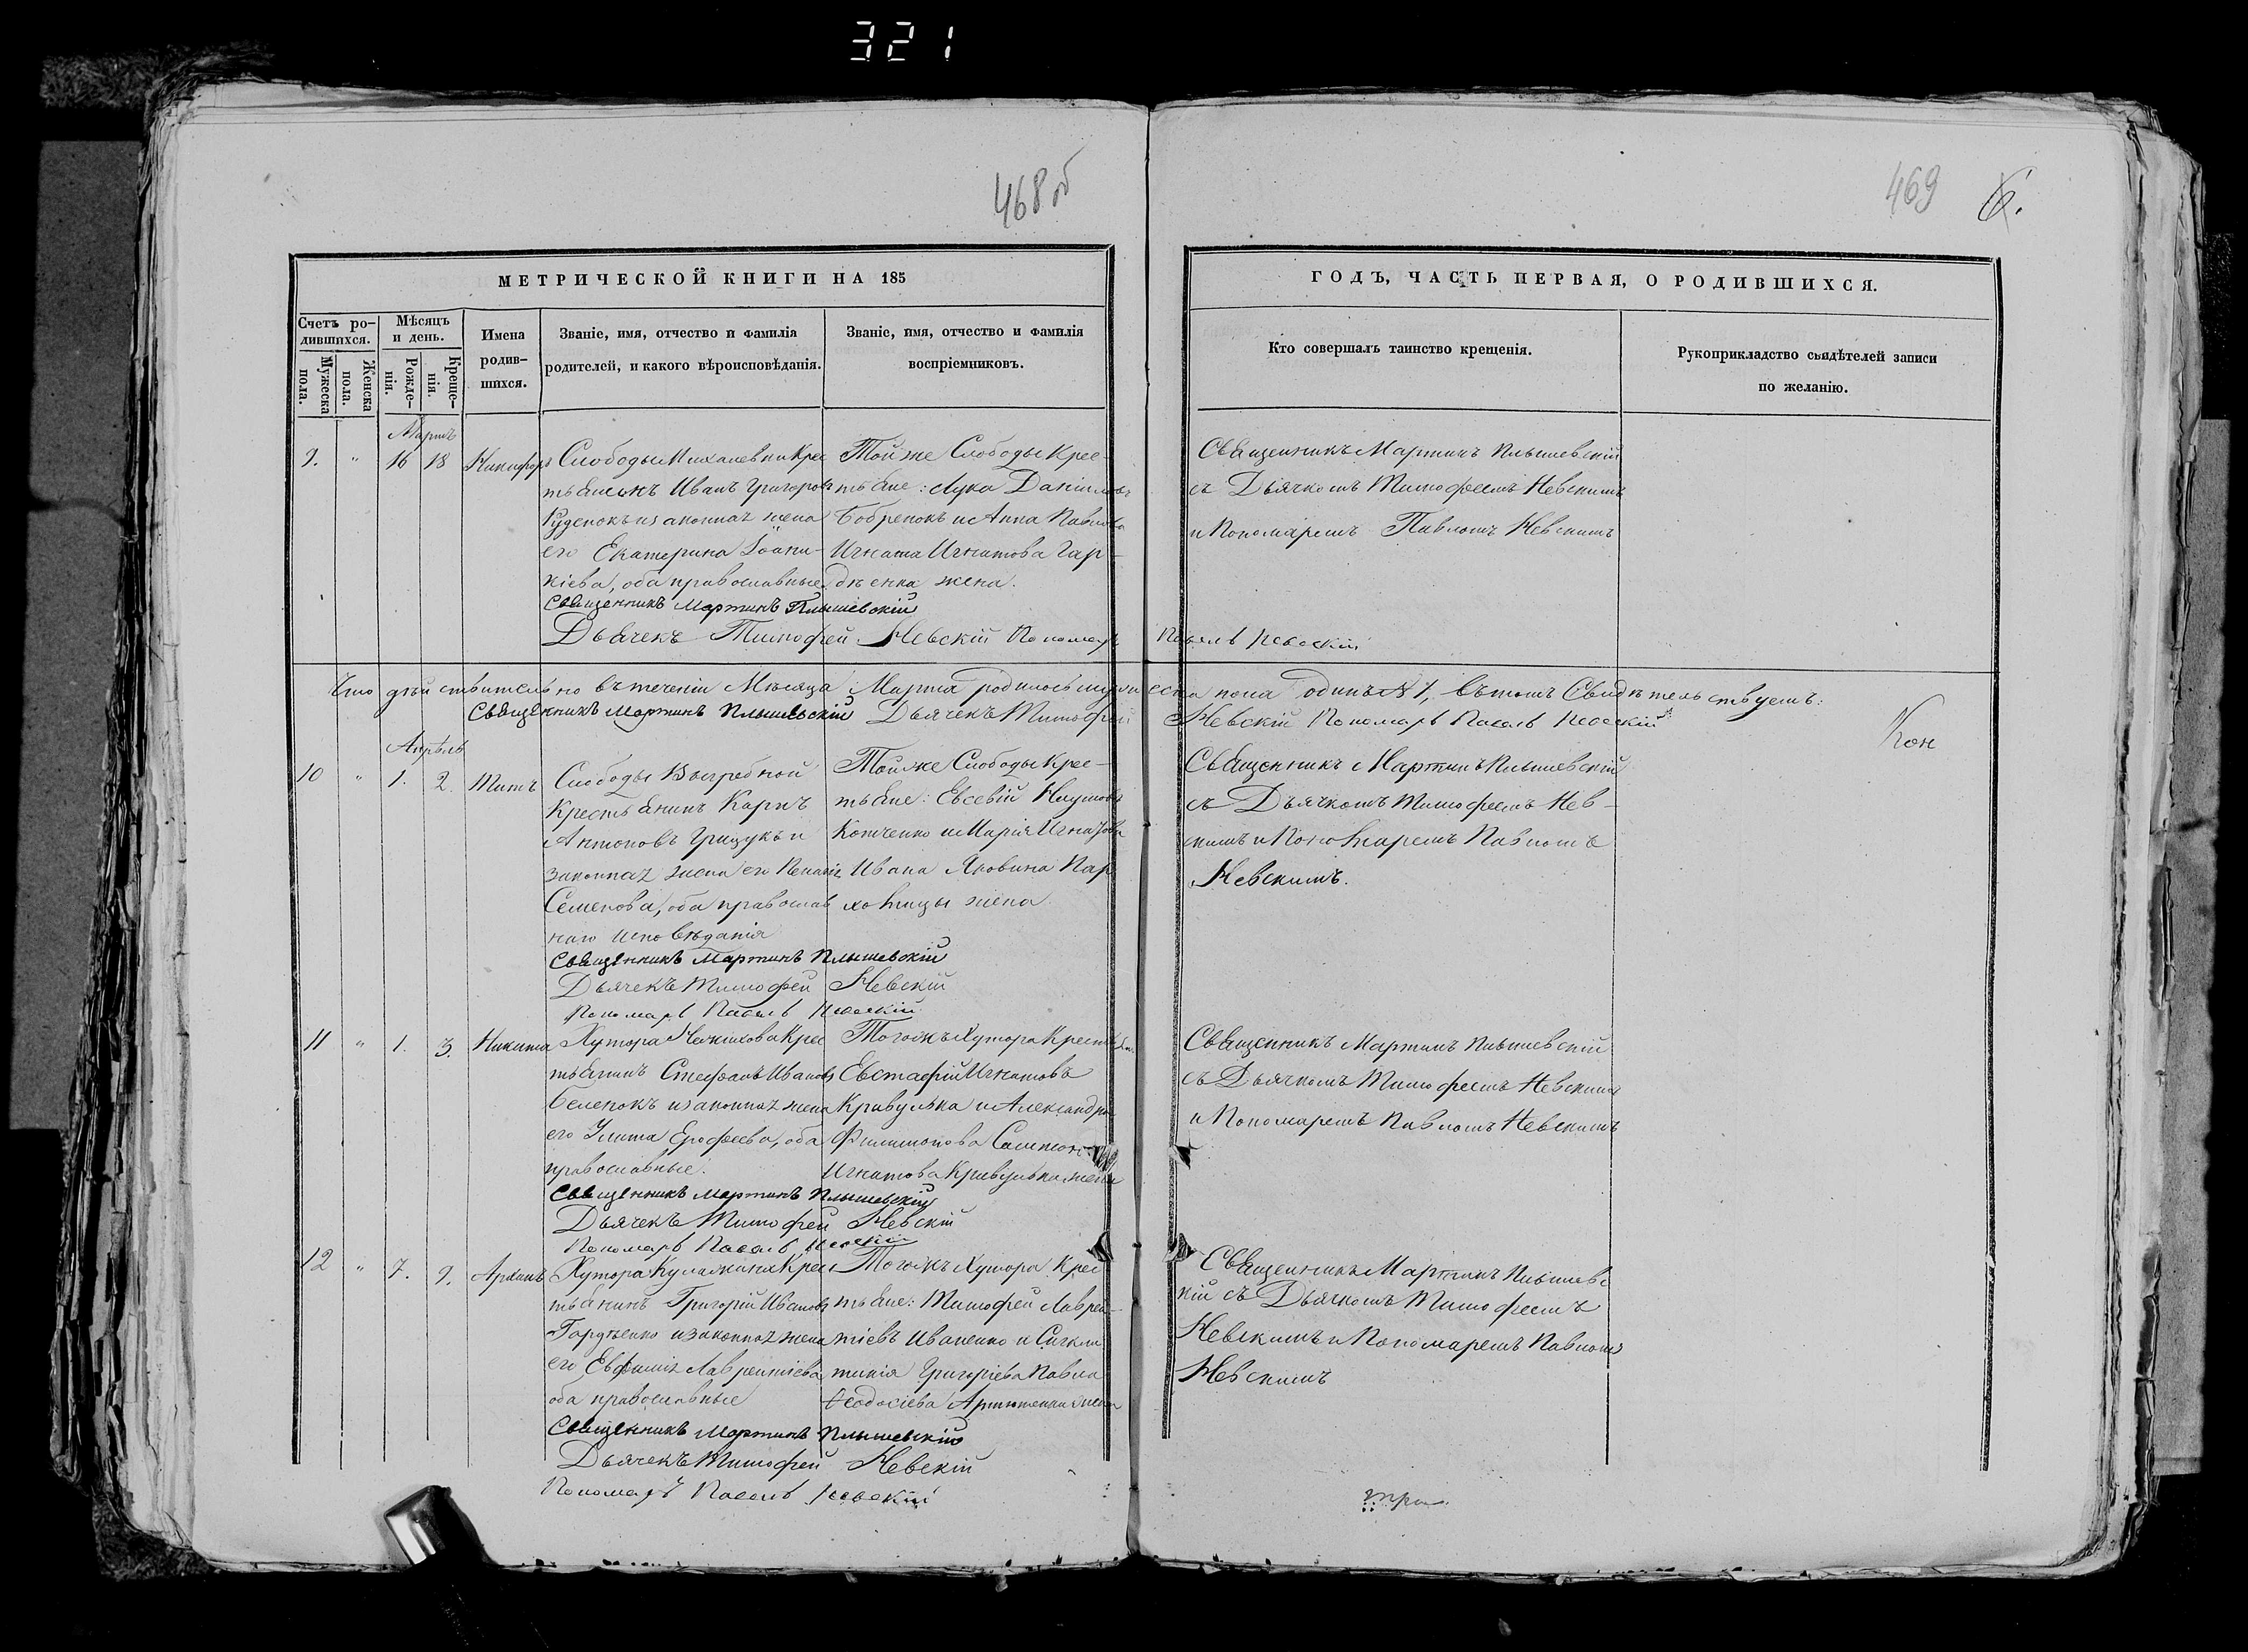 321
468 об
469
6.
МЕТРИЧЕСКОЙ КНИГИ НА 185
Счетъ ро-
дившихся.
Мужеска
пола.
Женска
пола.
Мѣсяцъ
и день.
Рожде-
нія.
Креще-
нія.
Имена
родив-
шихся.
Званіе, имя, отчество и фамилія
родителей, и какого вѣроисповѣданія.
Званіе, имя, отчество и фамилія
воспріемниковъ.
ГОДЪ, ЧАСТЬ ПЕРВАЯ, О РОДИВШИХСЯ.
Кто совершалъ таинство крещенія.
Рукоприкладство свидѣтелей записи
по желанію.
Мартъ
9. " 16 18 Никифоръ
Слободы Михалевки Крес
тьянинъ Иванъ Григоровъ
Руденокъ и законная жена
его Екатерина Іоанни-
кіева, оба православные
Той же Слободы Крес-
тьяне: Лука Даніиловъ
Бобренокъ и Анна Павлова
Игната Игнатова Гар-
дѣенка жена.
Священникъ Мартинъ Плышевскій
съ Дьячкомъ Тимофеемъ Невскимъ
и Пономаремъ Павломъ Невскимъ
Священникъ Мартинъ Плышевскій
Дьячекъ Тимофей Невскій Пономарь Павелъ Невскій
Что дѣйствительно въ теченіи Мѣсяца Марта родилось мужеска пола одинъ № 1, въ томъ Свидѣтельствуемъ:
Священникъ Мартинъ Плышевскій Дьячекъ Тимофей Невскій Пономарь Павелъ Невскій
Кон
Апрѣль
10 " 1. 2. Титъ
Слободы Выгребной
Крестьянинъ Карпъ
Антоновъ Грицукъ и
законная жена его
Семенова, оба православ
наго исповѣданія
Той же Слободы Крес-
тьяне: Евсевій Наумовъ
Котченко и Марія
Ивана Яковина Пар
хомицы жена
Священникъ Мартинъ Плышевскій
съ Дьячкомъ Тимофеемъ Нев-
скимъ и Пономаремъ Павломъ
Невскимъ.
Священникъ Мартинъ Плышевскій
Дьячекъ Тимофей Невскій
Пономарь Павелъ Невскій
11 " 1. 3. Никита
Хутора Крес
тьянинъ Стефанъ Ивановъ
Беленокъ и законная жена
его Улита Ерофеева, оба
православные.
Тогожъ Хутора Крестьяне
Евстафій Игнатовъ
Кривулька и Александра
Филимонова
Игнатова Кривулька жена
Священникъ Мартинъ Плышевскій
съ Дьячкомъ Тимофеемъ Невскимъ
и Пономаремъ Павломъ Невскимъ
Священникъ Мартинъ Плышевскій
Дьячекъ Тимофей Невскій
Пономарь Павелъ Невскій
12 " 7. 9.
Хутора Крес
тьянинъ Григорій Ивановъ
Гардѣенко и законная жена
его Евфимія Лаврентіева
оба православные
Тогожъ Хутора Крес
тьяне: Тимофей Лаврен-
тіевъ Иваненко и Сигкли
тикія Григоріева Павла
Ѳеодосіева Артюшенка жена
Священникъ Мартинъ Плышевс
кій съ Дьячкомъ Тимофеемъ
Невскимъ и Пономаремъ Павломъ
Невскимъ
Священникъ Мартинъ Плышевскій
Дьячекъ Тимофей Невскій
Пономарь Павелъ Невскій